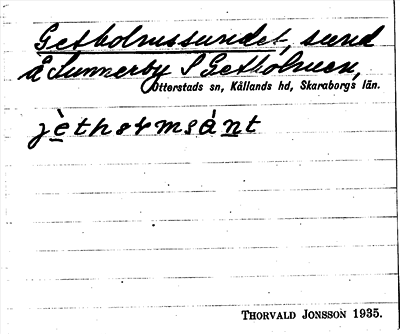 Getholmssundet, sund
å Sunnerby S Getholmen,
Otterstads sn, Kållands hd, Skaraborgs län.
jètho̵rmsànt
THORVALD JONSSON 1935.